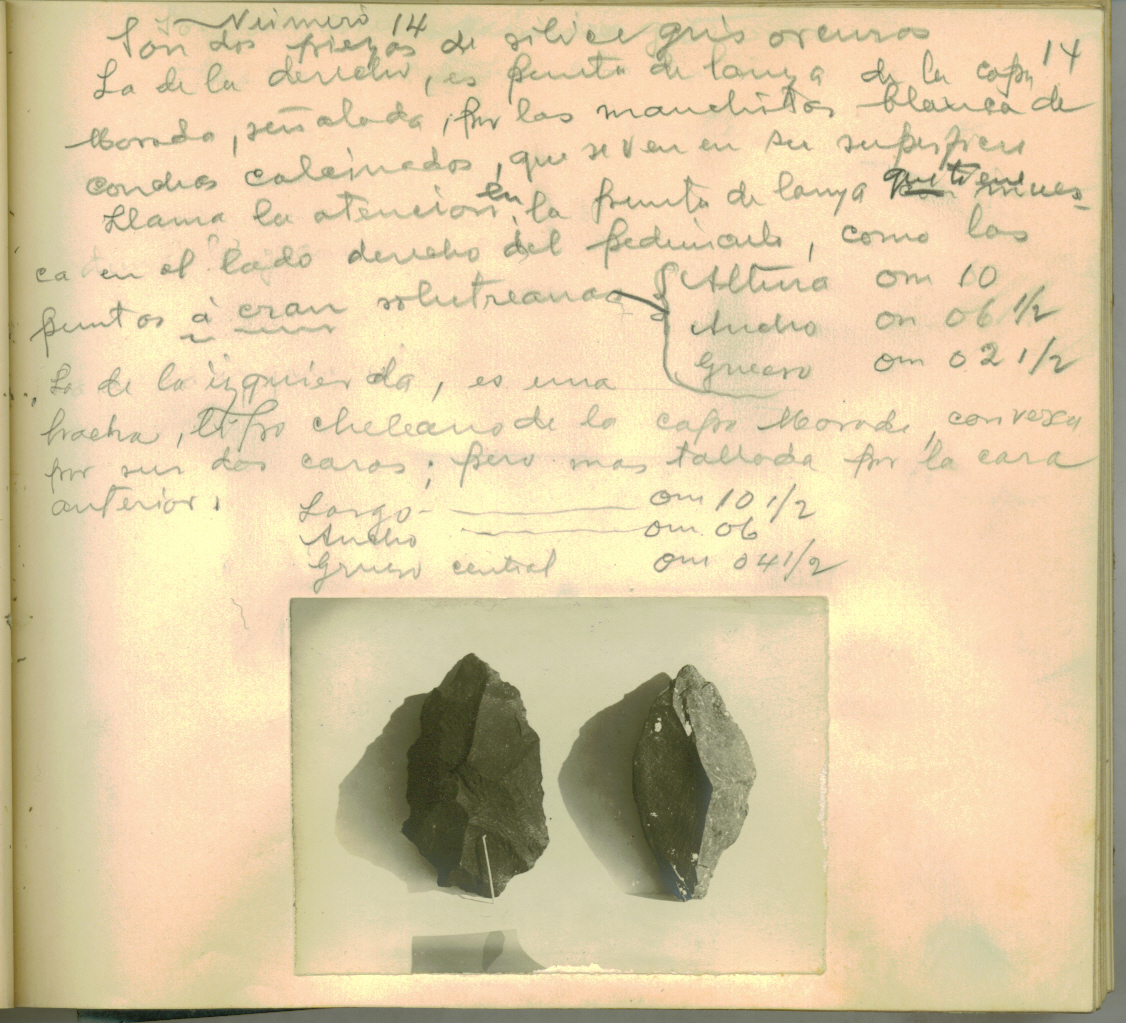 Número 14
14
Son dos piezas de silice gris oscuros
La de la derecha, es punta de lanza de la capa
Morada, señalada, por las manchitas blanca de
conchas calcinados, que se ven en su superficie
Llama la atencion en la punta de lanza que tiene mues-
ca en el lado derecho del pedunculo, como las
puntas à cran solutreanas
Altura 0m 10
Ancho 0m 06 1/2
Grueso 0m 02 1/2
La de la izquierda, es una
hacha, tipo cheleano de la capa Morada, convexa
por sus dos caras; pero mas tallada por la cara
anterior.
Largo 0m 10 1/2
Ancho 0m 06
Grueso central 0m 04 1/2